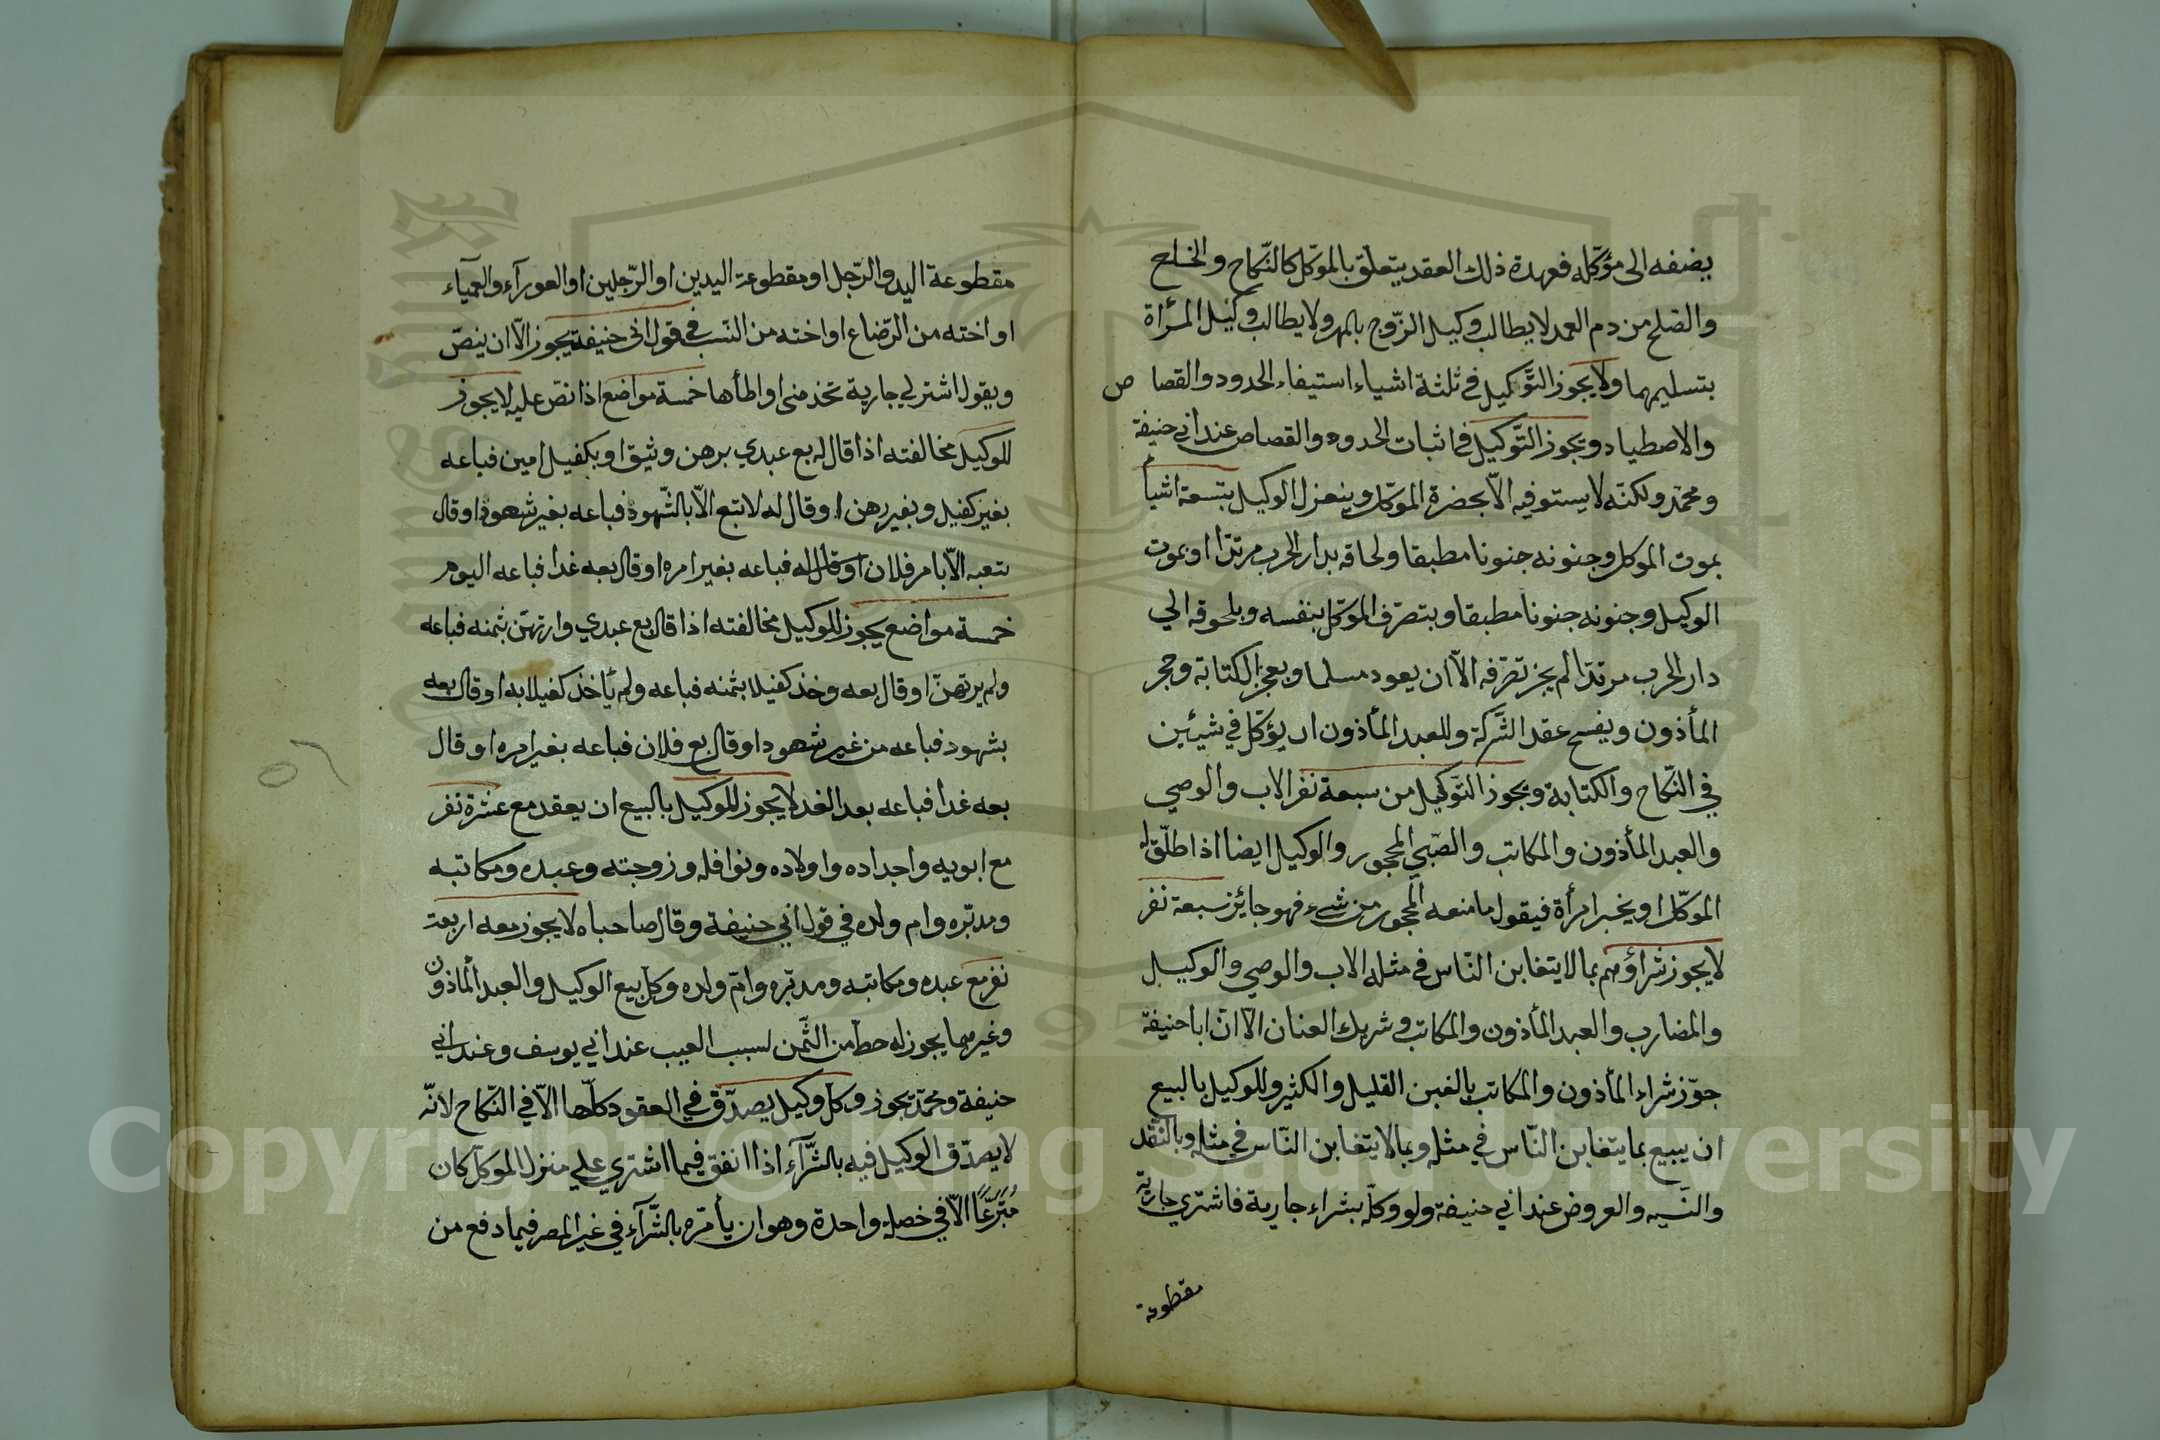 يضفه الى موكله فعهدة ذلك العقد يتعلق بالموكل كالنكاح والخلع
والصلح من دم العمد لا يطالب وكيل الزوج بالمهر ولا يطالب وكيل المرأة
بتسليمها ولا يجوز التوكيل في ثلثة اشياء استيفاء الحدود والقصاص
والاصطياد ويجوز التوكيل في اثبات الحدود والقصاص عند ابي حنيفة
ومحمد ولكنه لا يستوفيه الا بحضرة الموكل وينعزل الوكيل بتسعة اشيأ
بموت الموكل وجنونه جنونا مطبقا ولحاقه بدار الحرب مرتدا او بموت
الوكيل وجنونه جنونا مطبقا وبتصرف الموكل بنفسه وبلحوقه الي
دار الحرب مرتدا لم يجز تصرفه الا ان يعود مسلما وبعجز الكتابة وحجر
المأذون وبفسخ عقد الشركة وللعبد المأذون ان يؤكل في شيئين
في النكاح والكتابة ويجوز التوكيل من سبعة نفر الاب والوصي
والعبد المأذون والمكاتب والصبي المحجور والوكيل ايضا اذا اطلق له
الموكل او يخبر امرأة فيقول ما منعه المحجور من شيء فهو جائز سبعة نفر
لا يجوز شراؤهم بما لا يتغابن الناس في مثله الاب والوصي والوكيل
والمضارب والعبد المأذون والمكاتب وشريك العنان الا ان ابا حنيفة
جوز شراء المأذون والمكاتب بالغبن القليل والكثير وللوكيل بالبيع
ان يبيع بما يتغابن الناس في مثله وبما لا يتغابن الناس في مثله وبالنقد
والنسيه والعروض عند ابي حنيفة ولو وكله بشراء جارية فاشتري جارية
مقطوعة
مقطوعة اليد والرجل او مقطوعة اليدين او الرجلين او العورآء والعمياء
او اخته من الرضاع او اخته من النسب في قول ابي حنيفة يجوز الا ان ينص
ويقول اشتر لي جارية تخدمني او اطأها خمسة مواضع اذا نص عليه لا يجوز
للوكيل مخالفته اذا قال له بع عبدي برهن وثيق او بكفيل امين فباعه
بغير كفيل وبغير رهن او قال له لا تبع الا بالشهود فباعه بغير شهود او قال
تبعه الا بامر فلان او قال له فباعه بغير امره او قال بعه غدا فباعه اليوم
خمسة مواضع يجوز للوكيل مخالفته اذا قال بع عبدي وارتهن بثمنه فباعه
ولم يرتهن او قال بعه وخذ كفيلا بثمنه فباعه ولم يأخذ كفيلا به او قال بعه
بشهود فباعه من غير شهود او قال بع فلان فباعه بغير امره او قال
بعه غدا فباعه بعد الغد لا يجوز للوكيل بالبيع ان يعقد مع عشرة نفر
مع ابويه واجداده واولاده ونوافله وزوجته وعبده ومكاتبه
ومدبره وام ولده في قول ابي حنيفة وقال صاحباه لا يجوز معه اربعة
نفر مع عبده ومكاتبه ومدبره وام ولده وكل بيع الوكيل والعبد المأذون
وغيرهما يجوز له حط من الثمن لسبب العيب عند ابي يوسف وعند ابي
حنيفة ومحمد يجوز وكل وكيل يصدق في العقود كلها الا في النكاح لانه
لا يصدق الوكيل فيه بالشرآء اذا انفق فيما اشتري علي منزل الموكل كان
متبرعا الا في خصله واحدة وهو ان يأمره بالشرآء في غير المصر فيما دفع من
Copyright © King Saud University